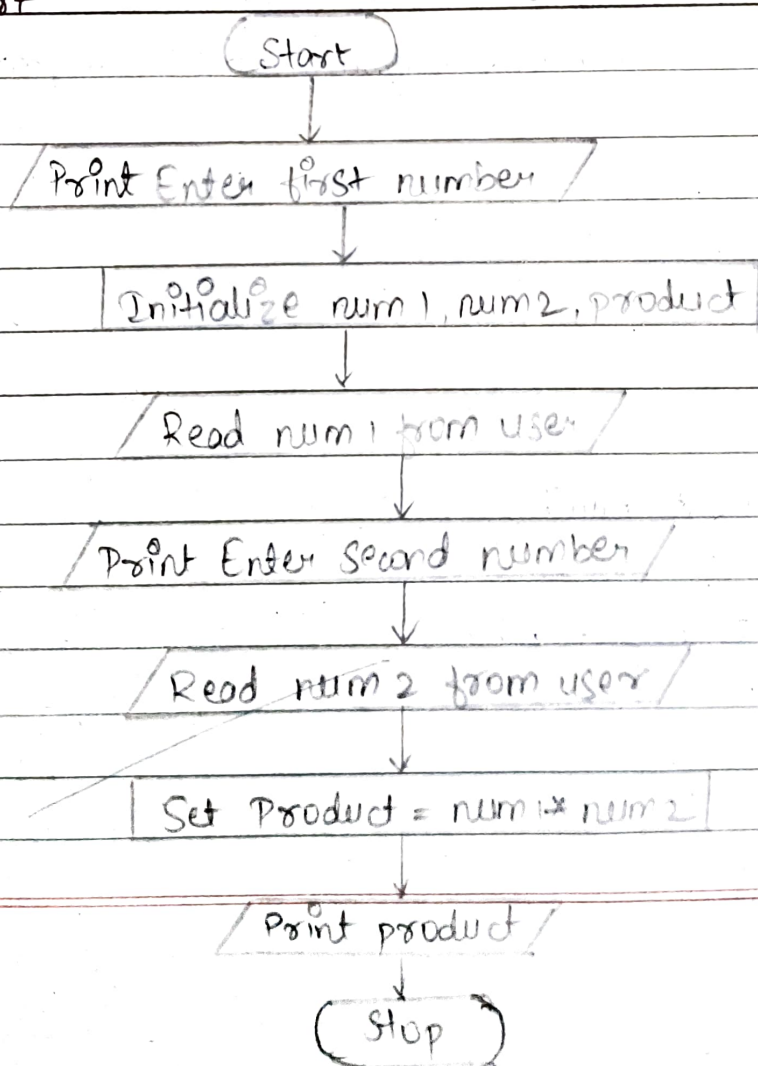 Start
Print Enter first number
Initialize num1, num2, product
Read num1 from user
Print Enter Second number
Read num2 from user
Set Product = num1 * num2
Print product
Stop